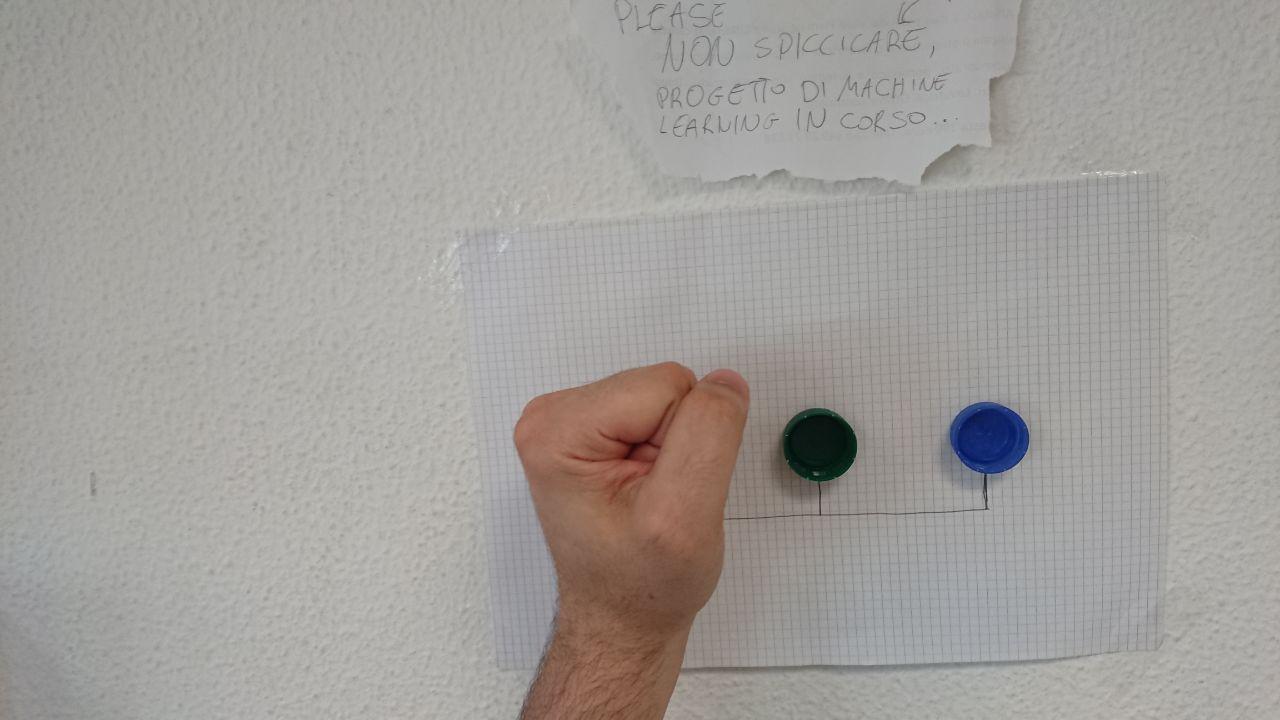 PLEASE
NON SPICCICARE,
PROGETTO DI MACHINE
LEARNING IN CORSO...